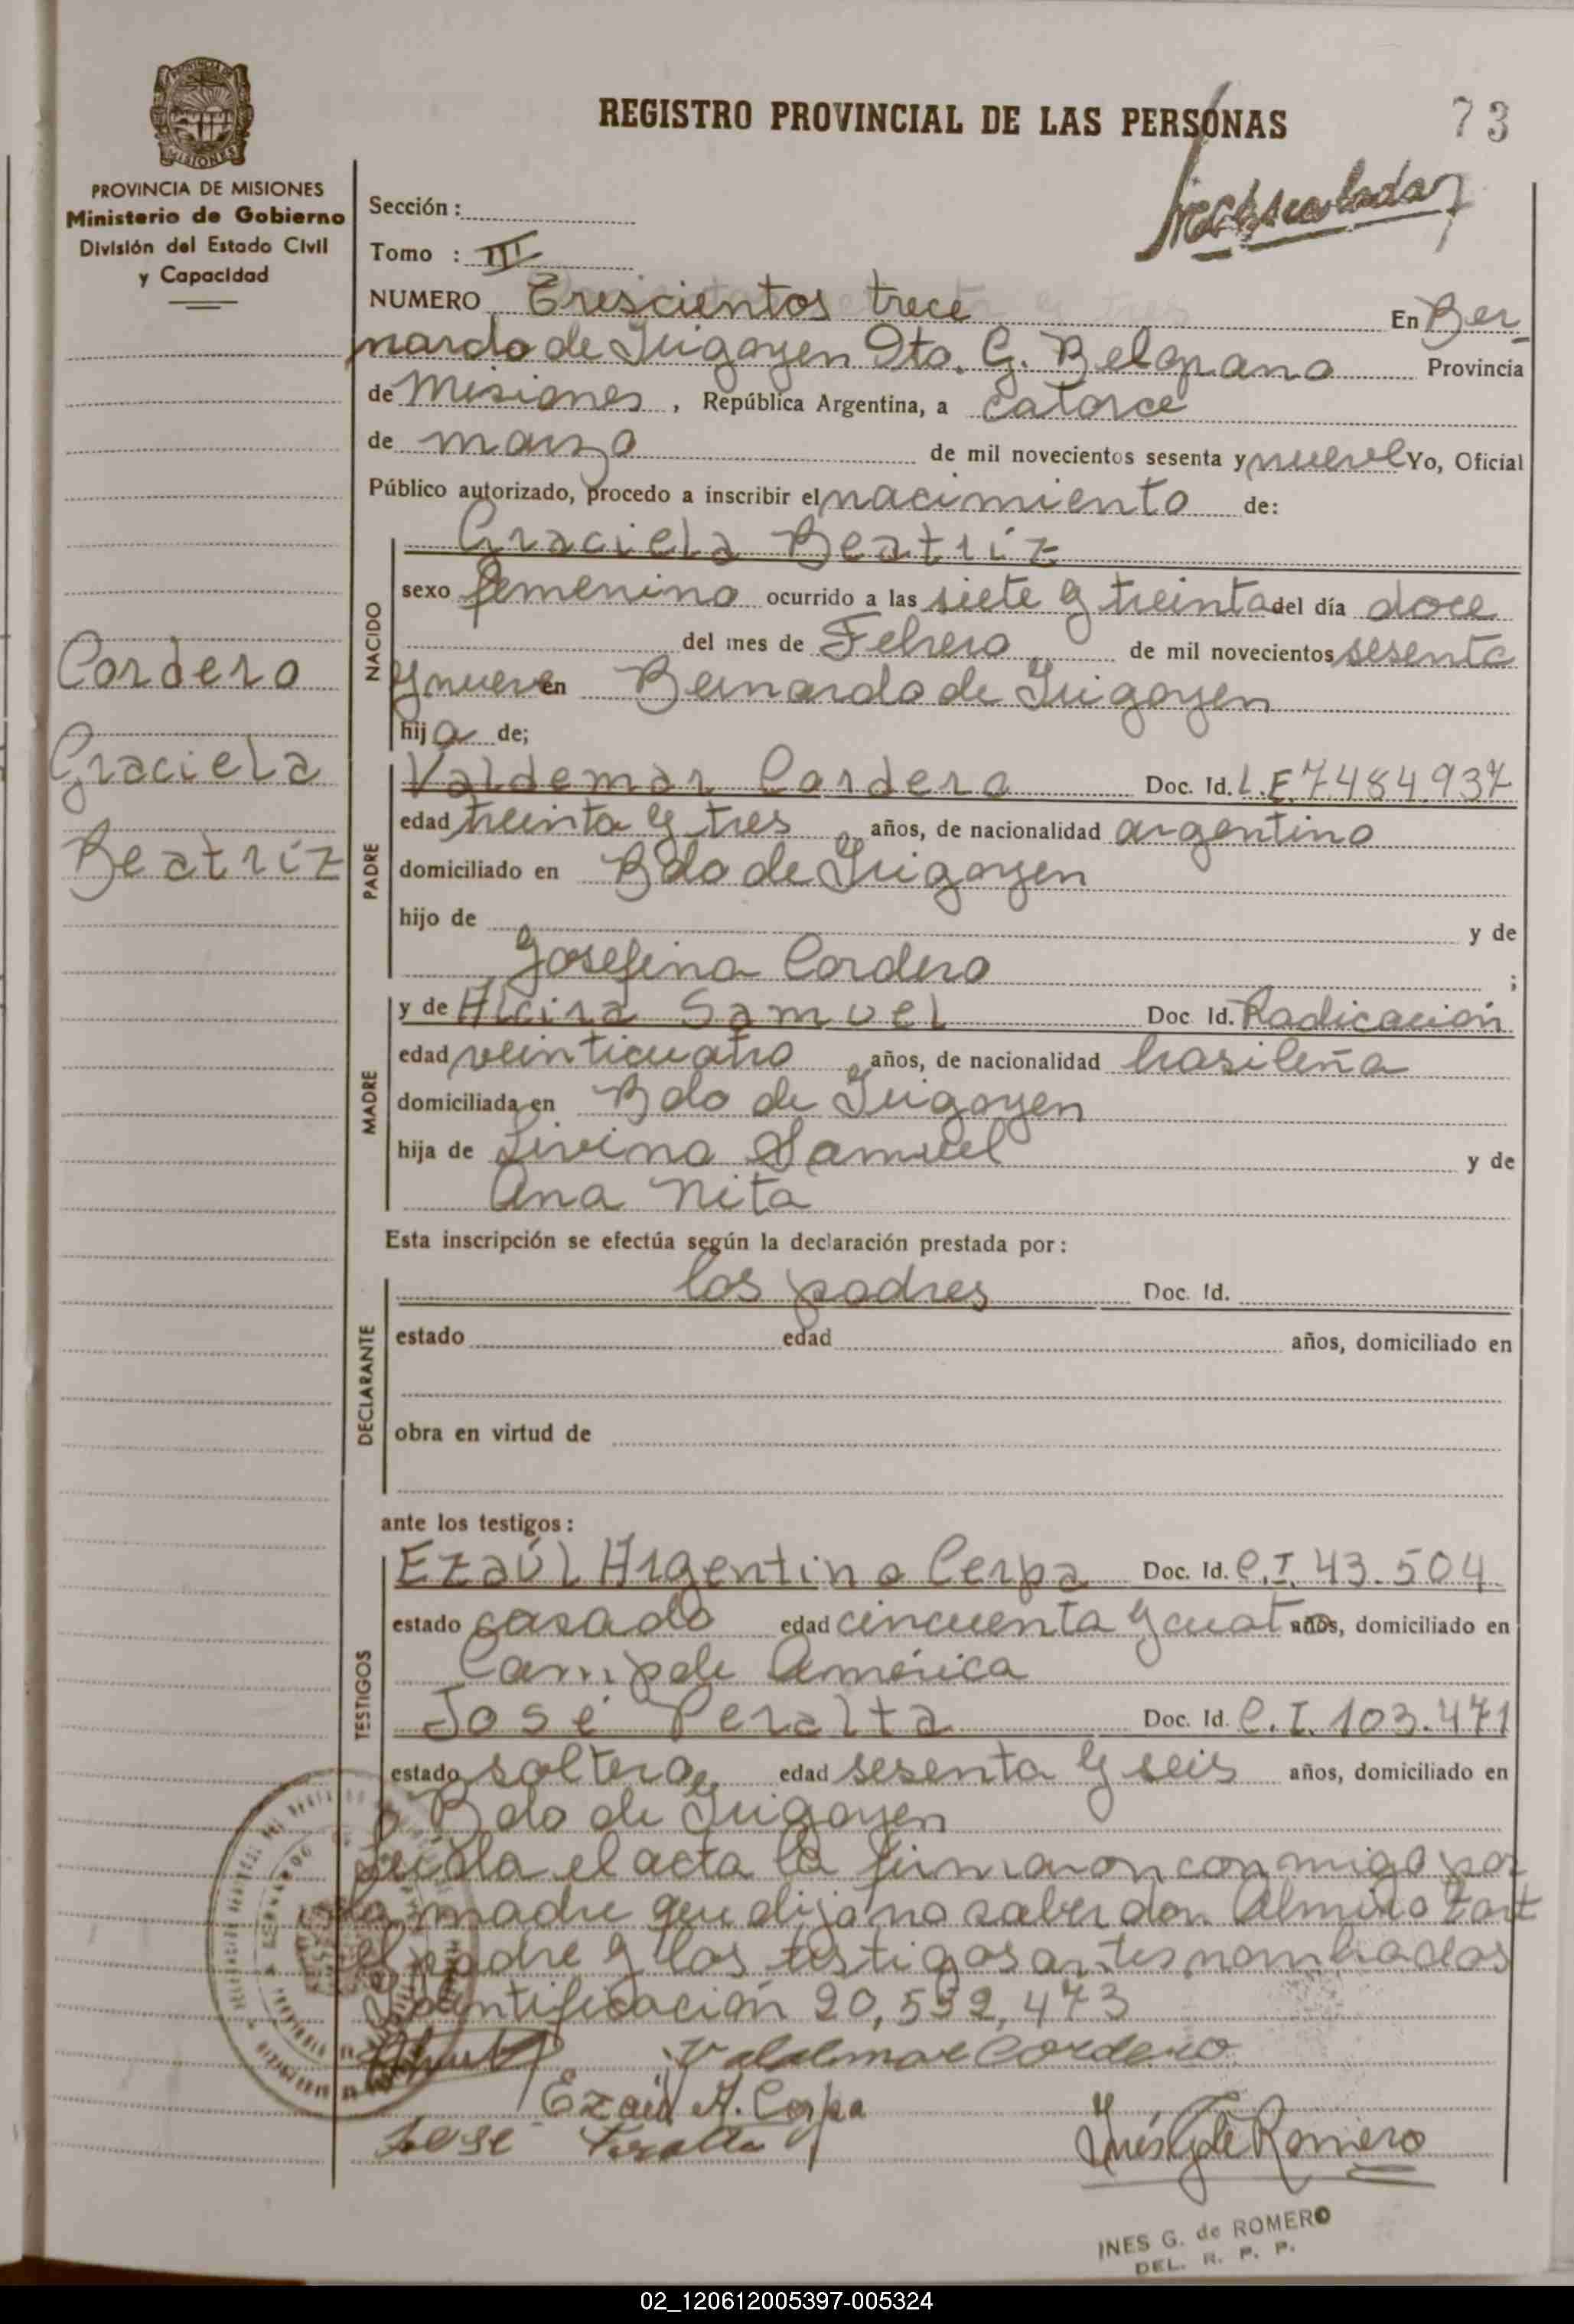 REGISTRO PROVINCIAL DE LAS PERSONAS
73
PROVINCIA DE MISIONES
Ministerio de Gobierno
División del Estado Civil
y Capacidad
Sección :
Tomo : III
NUMERO Trescientos trece En Ber-
nardo de Irigoyen Dto. G. Belgrano Provincia
de Misiones, República Argentina, a catorce
de marzo de mil novecientos sesenta y nueve Yo, Oficial
Público autorizado, procedo a inscribir el nacimiento de:
Graciela Beatriz
NACIDO
sexo femenino ocurrido a las siete y treinta del día doce
del mes de Febrero de mil novecientos sesenta
y nueve en Bernardo de Irigoyen
hija de;
Cordero
Graciela
Beatriz
PADRE
Valdemar Cordero Doc. Id. L.E. 7484937
edad treinta y tres años, de nacionalidad argentino
domiciliado en Bdo de Irigoyen
hijo de y de
Josefina Cordero ;
MADRE
y de Alcira Samuel Doc Id. Radicación
edad veinticuatro años, de nacionalidad brasileña
domiciliada en Bdo de Irigoyen
hija de Livino Samuel y de
Ana Nita
Esta inscripción se efectúa según la declaración prestada por:
DECLARANTE
los padres Doc. Id.
estado edad años, domiciliado en
obra en virtud de
ante los testigos:
TESTIGOS
Ezaúl Argentino Cerpa Doc. Id. C.I. 43.504
estado casado edad cincuenta y cuatro años, domiciliado en
Camp de América
José Peralta Doc. Id. C.I. 103.471
estado soltero edad sesenta y seis años, domiciliado en
Bdo de Irigoyen
Leída el acta la firmaron conmigo por
la madre que dijo no saber don Almiro Zart
el padre y los testigos antes nombrados
Identificación 20,532,473
Valdemar Cordero
Ezaúl A. Cerpa
Jose Peralta
Inés G de Romero
INES G. de ROMERO
DEL. R. P. P.
02_120612005397-005324